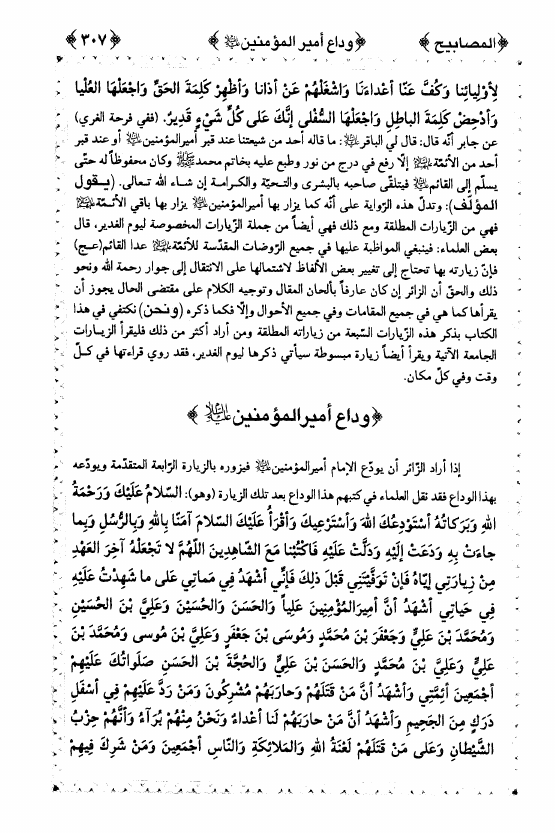 ﴿المصابيح﴾ ﴿وداع أمير المؤمنين ﷺ﴾ ﴿٣٠٧﴾
لِأَوْلِيائِنا وَكُفَّ عَنّا أَعْداءَنا وَاشْغَلْهُمْ عَنْ أَذانا وَأَظْهِرْ كَلِمَةَ الحَقِّ وَاجْعَلْها العُلْيا
وَأَدْحِضْ كَلِمَةَ الباطِلِ وَاجْعَلْهَا السُّفْلى إنَّكَ عَلى كُلِّ شَيْءٍ قَدِيرٌ. (ففي فرحة الغري)
عن جابر أنّه قال: قال لي الباقر: ما قاله أحد من شيعتنا عند قبر أميرالمؤمنين أو عند قبر
أحد من الأئمّة إلّا رفع في درج من نور وطبع عليه بخاتم محمد وكان محفوظاً له حتّى
يسلّم إلى القائم فيتلقّى صاحبه بالبشرى والتحيّة والكرامة إن شاء الله تعالى. (يقول
المؤلّف): وتدلّ هذه الرّواية على أنّه كما يزار بها أميرالمؤمنين يزار بها باقي الأئمّة
فهي من الزّيارات المطلقة ومع ذلك فهي أيضاً من جملة الزّيارات المخصوصة ليوم الغدير، قال
بعض العلماء: فينبغي المواظبة عليها في جميع الرّوضات المقدّسة للأئمّة عدا القائم(عـج)
فإنّ زيارته بها تحتاج إلى تغيير بعض الألفاظ لاشتمالها على الانتقال إلى جوار رحمة الله ونحو
ذلك والحقّ أن الزائر إن كان عارفاً بألحان المقال وتوجيه الكلام على مقتضى الحال يجوز أن
يقرأها كما هي في جميع المقامات وفي جميع الأحوال وإلّا فكما ذكره (ونحن) نكتفي في هذا
الكتاب بذكر هذه الزّيارات السّبعة من زياراته المطلقة ومن أراد أكثر من ذلك فليقرأ الزيـارات
الجامعة الآتية ويقرأ أيضاً زيارة مبسوطة سيأتي ذكرها ليوم الغدير، فقد روي قراءتها في كـلّ
وقت وفي كلّ مكان.
﴿وداع أمير المؤمنين عليه السلام﴾
إذا أراد الزّائر أن يودّع الإمام أميرالمؤمنين فيزوره بالزيارة الرّابعة المتقدّمة ويودّعه
بهذا الوداع فقد نقل العلماء في كتبهم هذا الوداع بعد تلك الزيارة (وهو): السَّلامُ عَلَيْكَ وَرَحْمَةُ
اللهِ وَبَرَكاتُهُ أَسْتَوْدِعُكَ اللهَ وَأَسْتَرْعِيكَ وَأَقْرَأُ عَلَيْكَ السَّلامَ آمَنّا بِاللهِ وَبِالرُّسُلِ وَبِما
جاءَتْ بِهِ وَدَعَتْ إِلَيْهِ وَدَلَّتْ عَلَيْهِ فَاكْتُبْنا مَعَ الشّاهِدِينَ اللّهُمَّ لا تَجْعَلْهُ آخِرَ العَهْدِ
مِنْ زِيارَتِي إِيّاهُ فَإِنْ تَوَفَّيْتَنِي قَبْلَ ذلِكَ فَإِنِّي أَشْهَدُ فِي مَماتِي عَلى ما شَهِدْتُ عَلَيْهِ
فِي حَياتِي أَشْهَدُ أَنَّ أَمِيرَالمُؤْمِنِينَ عَلِياً وَالحَسَنَ وَالحُسَيْنَ وَعَلِيَّ بْنَ الحُسَيْنِ
وَمُحَمَّدَ بْنَ عَلِيٍّ وَجَعْفَرَ بْنَ مُحَمَّدٍ وَمُوسَى بْنَ جَعْفَرٍ وَعَلِيَّ بْنَ مُوسى وَمُحَمَّدَ بْنَ
عَلِيٍّ وَعَلِيَّ بْنَ مُحَمَّدٍ وَالحَسَنَ بْنَ عَلِيٍّ وَالحُجَّةَ بْنَ الحَسَنِ صَلَواتُكَ عَلَيْهِمْ
أَجْمَعِينَ أَئِمَّتِي وَأَشْهَدُ أَنَّ مَنْ قَتَلَهُمْ وَحارَبَهُمْ مُشْرِكُونَ وَمَنْ رَدَّ عَلَيْهِمْ فِي أَسْفَلِ
دَرَكٍ مِنَ الجَحِيمِ وَأَشْهَدُ أَنَّ مَنْ حارَبَهُمْ لَنا أَعْداءٌ وَنَحْنُ مِنْهُمْ بُرَآءُ وَأَنَّهُمْ حِزْبُ
الشَّيْطانِ وَعَلى مَنْ قَتَلَهُمْ لَعْنَةُ اللهِ وَالمَلائِكَةِ وَالنّاسِ أَجْمَعِينَ وَمَنْ شَرِكَ فِيهِمْ